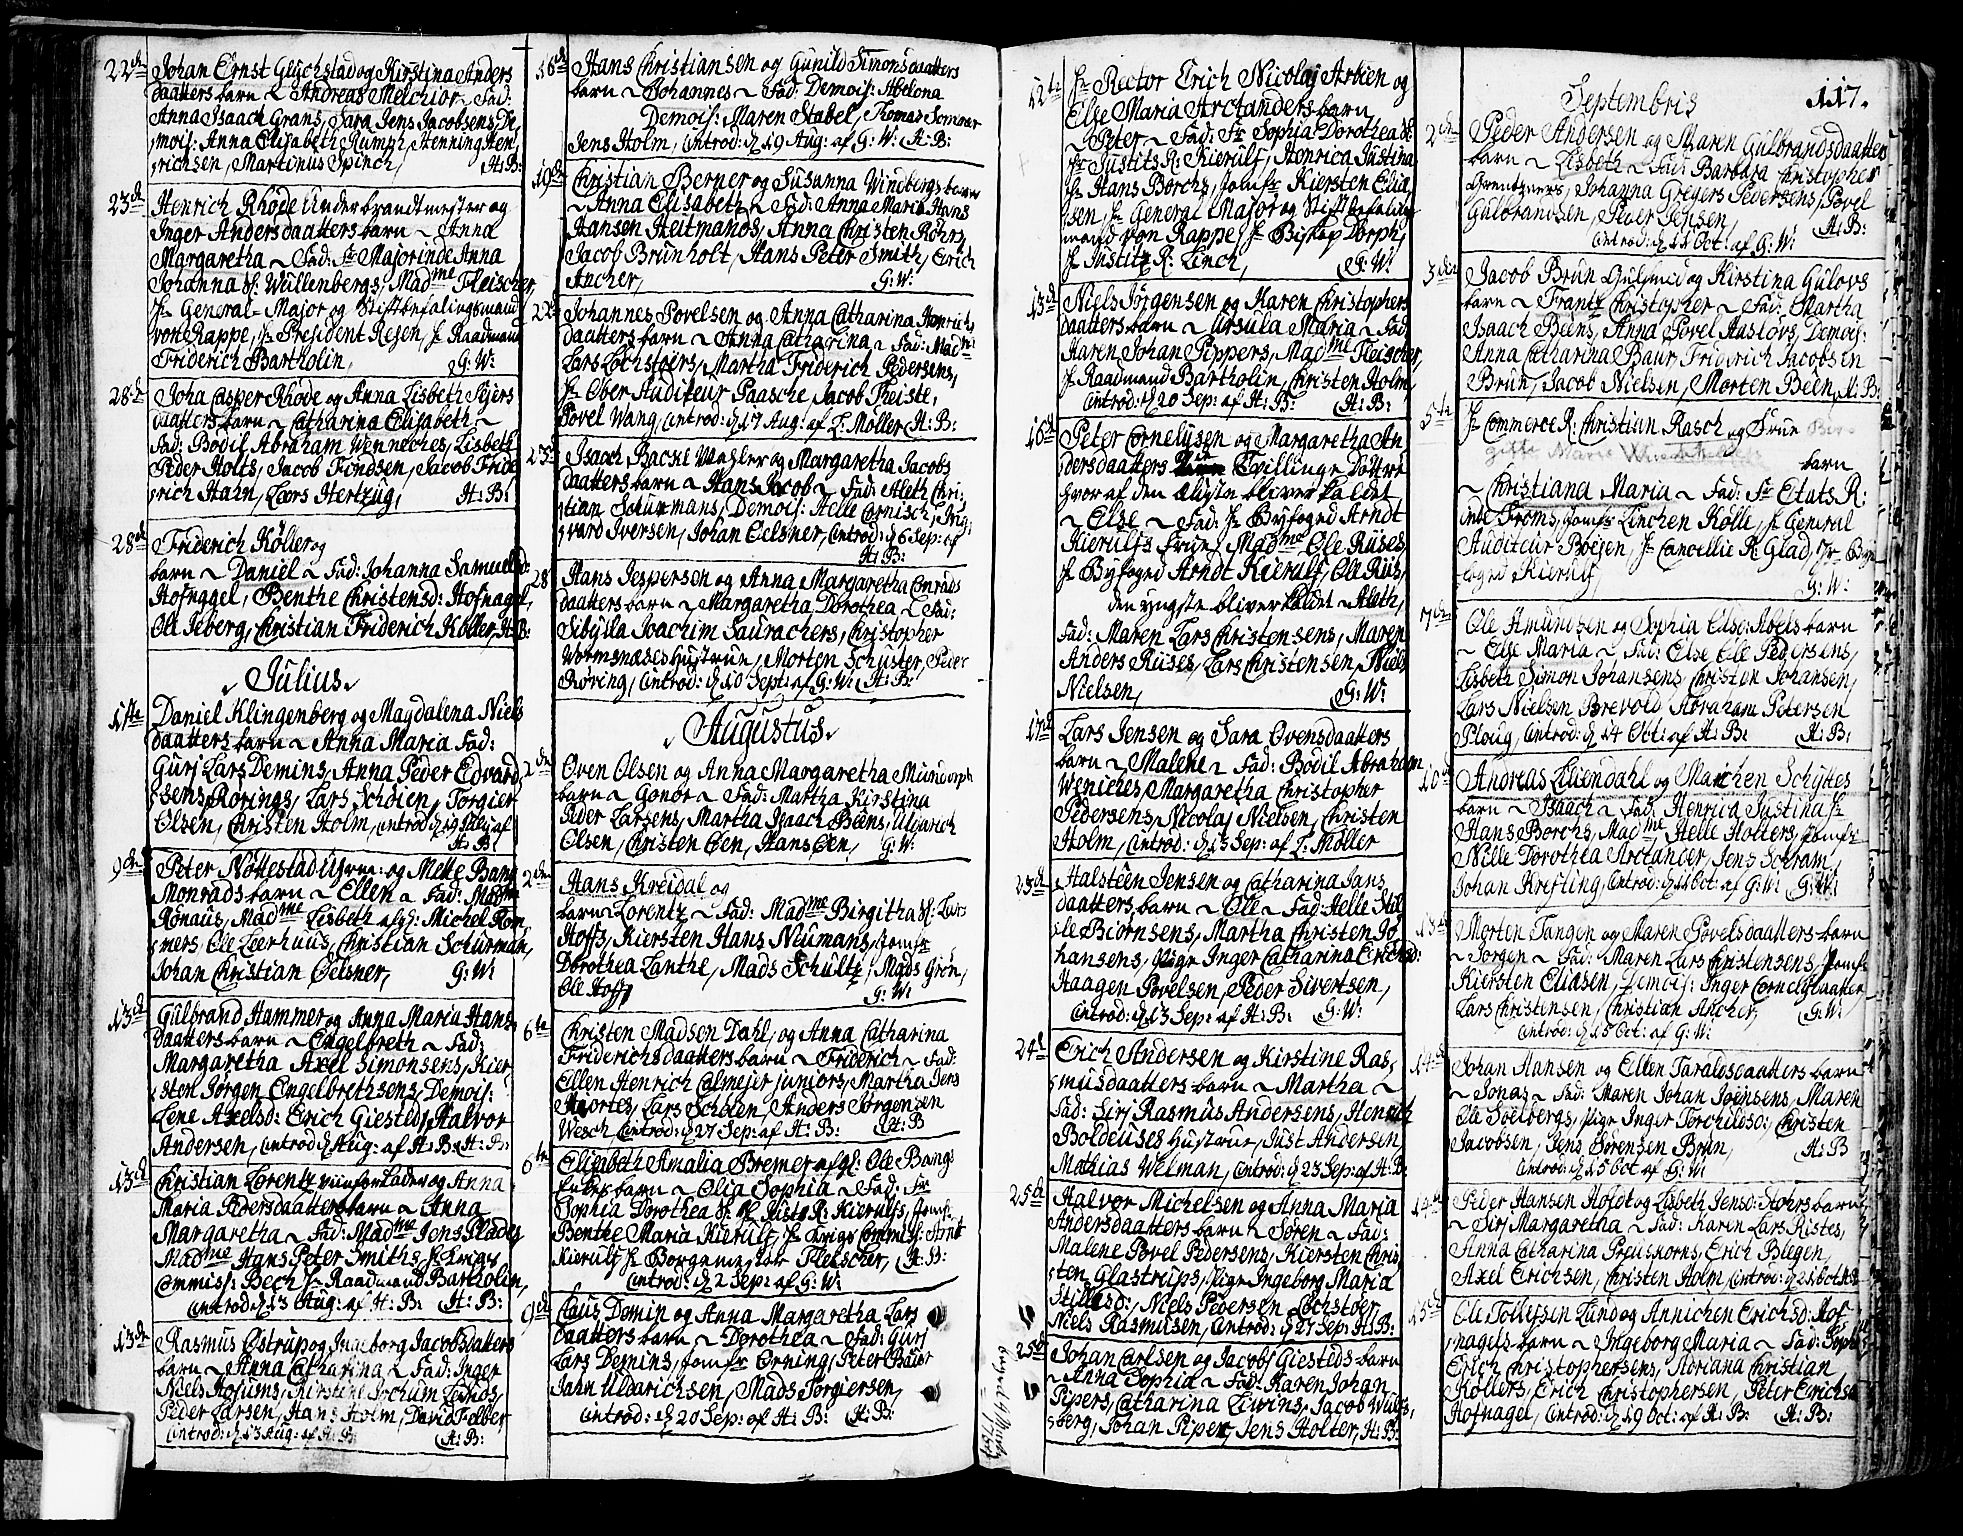 22de Johan Ernst Gluchstad og Kirstina Anders
daatters barn ~ Andreas Melchior ~ Fad:
Anna Isaach Grans, Sara Jens Jacobsens De,
mois: Anna Elisabeth Rumph, Henning Hen,
richsen, Martinus Spinch, H: B:
23de Henrich Rhode Underbrandtmester og
Inger Andersdaatters barn ~ Anna
Margaretha ~ Fad: Fr Majorinde Anna
Johanna Sl: Willenbergs, Madme Fleischer
Hr General-Major og Stiftbefalingsmand
von Rappe, Hr President Resen, Hr Raadmand
Friderich Bartholin, G: W:
28de Joha Casper Rhode og Anna Lisbeth Sejers
daatters barn ~ Catharina Elisabeth ~
Fad: Bodil Abraham Wenneches, Lisbeth
Peder Holts, Jacob Findsen, Jacob Fride
rich Hahn, Lars Hertzug, H: B:
28de Friderich Köller og
barn ~ Daniel ~ Fad: Johanna Samuelsd:
Hofnagel, Benthe Christensd: Hofnagel,
Ole Iseberg, Christian Friderich Köller, H: B:
Julius
1ste Daniel Klingenberg og Magdalena Niels
daatters barn ~ Anna Maria Fad:
Guri Lars Demins, Anna Peder Edvard
sens Rörings, Lars Schöien, Torgier
Olsen, Christen Holm, introd: d 19 July af
H: B:
9de Peter Nöttestad og Mette Bang
Monrads barn ~ Ellen ~ Fad: Madme
Ronaus, Madme Lisbeth afg: Michel Rom
mers, Ole Leerhuus, Christian Schurman,
Johan Christian Oelsner, G: W:
13de Gulbrand Hammer og Anna Maria Hans
daatters barn ~ Engelbreth ~ Fad:
Margaretha Axel Simonsens, Kier
sten Jörgen Engelbrethsens, Demois:
Lene Axelsd: Erich Giesteds, Halvor
Andersen, introd: d Aug: af H: B: H: B:
13de Christian Lorentz og Anna
Maria Pedersdaatters barn ~ Anna
Margaretha ~ Fad: Madme Jens Plades
Madme Hans Peter Smiths, Hr Krigs
Commiss: Bech Hr Raadmand Bartholin,
introd d 3 Aug: af H: B: H: B:
13de Rasmus Ostrup og Ingeborg Jacobsdaatters
barn ~ Anna Catharina ~ Fad: Inger
Niels Hofums, Kirstine Jochum Leinos,
Peder Larsen, Hans Holm, David Felber
introd: d 3 Aug: af H: B: H: B:
16de Hans Christiansen og Gunild Simonsdaatters
barn ~ Johannes ~ Fad: Demois: Abelona
Demois: Maren Stabel, Thomas Sommer
Jens Holm, introd: d 19 Aug: af G: W: H: B:
19de Christian Berner og Susanna Windbergs barn
~ Anna Elisabeth ~ Fad: Anna Maria Hans
Hansen Heitmands, Anna Christen Röhrs
Jacob Brunholt, Hans Peter Smith, Erich
Ancher, G: W:
22de Johannes Povelsen og Anna Catharina Henrichs
daatters barn ~ Anna Catharina ~ Fad: Madme
Lars Lochstöers, Martha Friderich Pedersens,
Hr Ober Auditeur Paasche, Jacob Theiste,
Povel Wang, introd: d 17 Aug: af L: Möller H: B:
23de Isaach Backe Wæhler og Margaretha Jacobs
daatters barn ~ Hans Jacob ~ Fad: Aleth Chri:
stian Schurmans, Demois: Helle Cornisch, Ing
vard Iversen, Johan Oelsner, introd: d 6 Sep: af
H: B:
28 Hans Jespersen og Anna Margaretha Conrads
daatters barn ~ Margaretha Dorothea ~ Fad:
Sibylla Joachim Saurachers, Christopher
Wormsnæses Hustrue, Morten Schuster, Peder
Röring, introd: d 10 Sept: af G: W: H: B:
Augustus
2den Oven Olsen og Anna Margaretha Mundorphs
barn ~ Gonor ~ Fad: Martha Kirstina
Peder Larsens, Martha Isaach Beens, Uldarich
Olsen, Christen Een, Hans Een, G: W:
2den Hans Kreidal og
barn ~ Lorentz ~ Fad: Madme Birgitha Sl: Lars
Hoffs, Kiersten Hans Neumans, Jomfr
Dorothea Lanthe, Mads Schultz, Mads Grön,
Ole Hoff, G: W:
6te Christen Madsen Dahl, og Anna Catharina
Friderichsdaatters barn ~ Friderich ~ Fad:
Ellen Henrich Calmejer juniors, Martha Jens
Hiortes, Lars Schöien, Anders Jörgensen
Wesch, introd: d 27 Sep: af H: B: H: B
6te Elisabeth Amalia Bremer afgl: Ole Bangs
Enkes barn ~ Olia Sophia ~ Fad: Fr
Sophia Dorothea Sl: Justits R: Kierulfs, Jomfr
Benthe Maria Kierulf, Hr Krigs Commiss: Arnt
Kierulf, Hr Borgemester Fleischer, H: B:
introd: d 2 Sep: af G: W:
9de Claus Demin og Anna Margaretha Lars
daatters barn ~ Dorothea ~ Fad: Guri
Lars Demins, Jomfr Orning, Peter Baur
Jahn Uldarichsen, Mads Torgiersen,
introd: d 20 Sep: af H: B: H: B:
12te Hr Rector Erich Nicolaj Arbien og
Else Maria Arctanders barn
~ Peter ~ Fad: Fr Sophia Dorothea Sl:
Hr Justits R: Kierulf, Henrica Justina
Hr Hans Borchs, Jomfr Kiersten Elia,
sen, Hr General Major og Stiftbefalings
mand von Rappe, Hr Biskop Dorph,
Hr Justitz R: Linch, G: W:
13de Niels Jörgensen og Karen Christophers
daatters barn ~ Ursula Maria ~ Fad:
Karen Johan Pippers, Madme Fleischer,
Hr Raadmand Bartholin, Christen Holm,
introd: d 20 Sep: af H: B: H: B:
16de Peter Cornelysen og Margaretha An
dersdaatters Tvillinge Döttre
hvoraf den Ældste bliver kaldet
~ Else ~ Fad: Hr Byfoged Arndt
Kierulfs Frue, Madme Ole Ruses
Hr Byfoged Arndt Kierulf, Ole Rus,
den yngste bliver kaldet ~ Aleth,
Fad: Maren Lars Christensens, Maren
Anders Ruses, Lars Christensen, Niels
Nielsen, G: W:
17de Lars Jensen og Sara Ovensdaatters
barn ~ Malene ~ Fad: Bodil Abraham
Weniches, Margaretha Christopher
Pedersens, Nicolaj Nielsen, Christen
Holm, introd: d 13 Sep: af L: Möller
23de Halsteen Jensen og Catharina Jans
daatters barn ~ Ole ~ Fad: Helle Stil
le Biörnsens, Martha Christen Jo
hansens, Pige Inger Catharina Erichsd:
Haagen Povelsen, Peder Sivertsen,
introd: d 13 Sep: af H: B: G: W:
24de Erich Andersen og Kirstine Ras,
musdaatters barn ~ Martha ~
Fad: Sirj Rasmus Andersens, Henrich
Boldeuses Hustrue, Just Andersen
Mathias Welman, introd: d 23 Sep: af H: B:
25de Halvor Michelsen og Anna Maria
Andersdaatters barn ~ Sören ~ Fad:
Malene Povel Pedersens, Kiersten Chri
sten Glastrups, Pige Ingeborg Maria
Stillesd:, Niels Pedersen Lochstöer,
Niels Rasmusen, introd: d 27 Sep: H: B:
25de Johan Carlsen og Jacobj Giesteds barn
~ Anna Sophia ~ Fad: Karen Johan
Pipers, Catharina Liwins, Jacob Wulfs,
berg, Johan Piper, Jens Holter, H: B:
Septembris 117.
2den Peder Andersen og Maren Gulbrandsdaatters
barn ~ Lisbeth ~ Fad: Barbara Christopher
Grentzners, Johanna Gregers Pedersens, Povel
Gulbrandsen, Peder Jensen, H: B:
introd: d 11 Oct: af G: W:
3die Jacob Brun Gulsmed og Kirstina Gulovs
barn ~ Frantz Christopher ~ Fad: Martha
Isaach Beens, Anna Povel Aaslovs, Demois:
Anna Catharina Baur, Friderich Jacobsen
Brun, Jacob Nielsen, Morten Been, H: B:
5te Hr Commerce R: Christian Rasch og Frue Bir
gitte Maria
barn
~ Christiana Maria ~ Fad: Fr Etats R:
inde Froms, Jomfr Linchen Kölle, Hr General
Auditeur Boejen, Hr Cancellie R: Glad, Hr By
foged Kierulf, G: W:
7de Ole Amundsen og Sophia Edse: Abels barn
~ Else Maria ~ Fad: Else Ole Pedersens,
Lisbeth Simon Johansens, Christen Johansen,
Lars Nielsen Brevold, Abraham Petersen
Ploug, introd: d 14 Oct: af H: B: H: B:
10de Andreas Liliendahl og Maichen Schyttes
barn ~ Isaach ~ Fad: Henrica Justina Hr
Hans Borchs, Madme Helle Holters, Jomfr
Nille Dorothea Arctander, Jens Schram,
Johan Krefting, introd: d 11 Oct: af G: W: G: W:
13de Morten Tangen og Maren Povelsdaatters barn
~ Jörgen ~ Fad: Maren Lars Christensens, Jomfr
Kiersten Eliasen, Demois: Inger Cornelydaatter
Lars Christensen, Christian Ancher, G: W:
introd: d 15 Oct: af G: W:
14de Johan Hansen og Ellen Taraldsdaatters barn
~ Jonas ~ Fad: Maren Johan Joensens, Maren
Ole Soelbergs, Pige Inger Torchildsd:, Christen
Jacobsen, Jens Sörensen Brun, H: B
introd: d 15 Oct af G: W:
14de Peder Hansen Holdt og Lisbeth Jensd: Stohrs barn
~ Sirj Margaretha ~ Fad: Karen Lars Ristes,
Anna Catharina Preuskorns, Erich Blegen,
Axel Erichsen, Christen Holm, introd: d 21 Oct H: B
15de Ole Tollefsen Lund og Annichen Erichsd: Hof,
nagels barn ~ Ingeborg Maria ~ Fad: Sophia
Erich Christophersens, Adriana Christian
Köllers, Erich Christophersen, Peter Erichsen
Hofnagel, introd: d 19 Oct: af H: B: H: B: